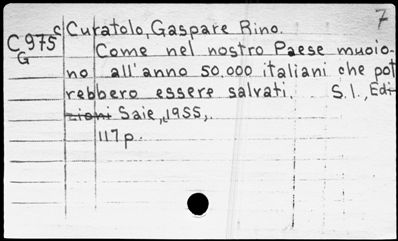 7
C 975 c Curatolo, Gaspare Rino.
G Come nel nostro Paese muoio-
no all'anno 50.000 italiani che pot
rebbero essere salvati. S.l., Edi-
zioni Saie, 1955,.
117 p.